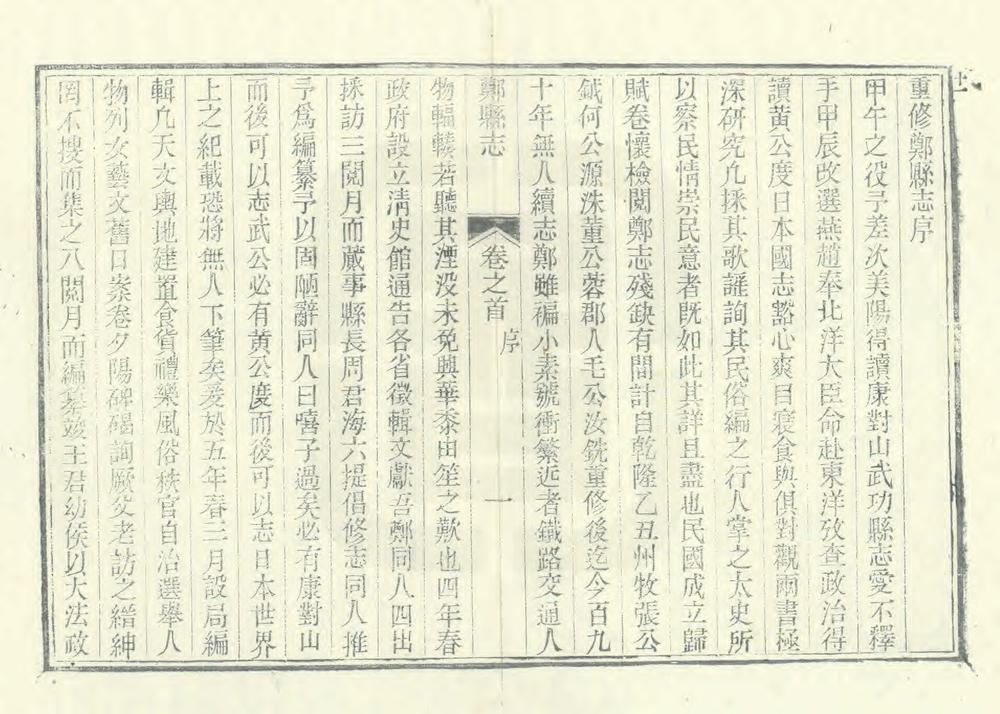 重修鄭縣志序
甲午之役予差次美陽得讀康對山武功縣志愛不釋
手甲辰改選燕趙奉北洋大臣命赴東洋攷查政治得
讀黃公度日本國志豁心爽目寢食與俱對觀兩書極
深研究凡採其歌謠詢其民俗編之行人掌之太史所
以察民情崇民意者既如此其詳且盡也民國成立歸
賦卷懷檢閱鄭志殘缺有間計自乾隆乙丑州牧張公
鉞何公源洙董公蓉郡人毛公汝銑重修後迄今百九
十年無人續志鄭雖褊小素號衝繁近者鐵路交通人
鄭縣志
卷之首
序
一
物輻輳若聽其湮没未免興華黍由笙之歎也四年春
政府設立清史館通告各省徵輯文獻吾鄭同人四出
採訪三閱月而蕆事縣長周君海六提倡修志同人推
予爲編纂予以固陋辭同人曰嘻子過矣必有康對山
而後可以志武公必有黃公度而後可以志日本世界
上之紀載恐將無人下筆矣爰於五年春三月設局編
輯凡天文輿地建置食貨禮樂風俗秩官自治選舉人
物列女藝文舊日案卷夕陽碑碣詢厥父老訪之縉紳
罔不搜而集之八閱月而編纂竣王君幼侯以大法政